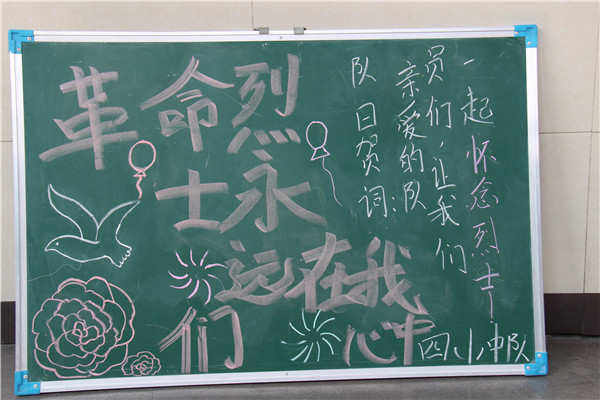 革命烈
士永
远在我
们心中
队日贺词:
亲爱的队
员们,让我们
一起怀念烈士!
四小中队